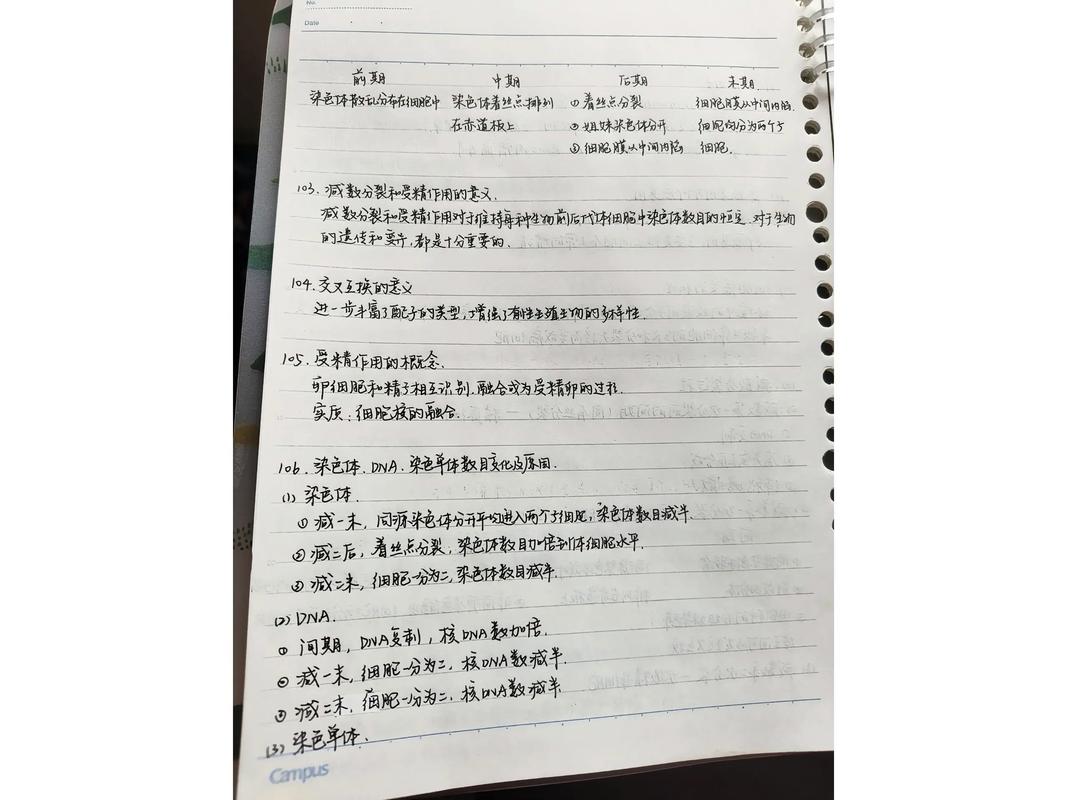 No.
Date
前期 中期 后期 末期
染色体散乱分布在细胞中 染色体着丝点排列 ①着丝点分裂 细胞膜从中间内陷.
在赤道板上 ②姐妹染色体分开 细胞均分为两个子
③细胞膜从中间内陷 细胞.
103. 减数分裂和受精作用的意义.
减数分裂和受精作用对于维持每种生物前后代体细胞中染色体数目的恒定、对于生物
的遗传和变异,都是十分重要的.
104. 交叉互换的意义
进一步丰富了配子的类型,增强了有性生殖生物的多样性.
105. 受精作用的概念.
卵细胞和精子相互识别、融合成为受精卵的过程
实质:细胞核的融合.
106. 染色体、DNA、染色单体数目变化及原因.
(1) 染色体.
①减一末,同源染色体分开平均进入两个子细胞,染色体数目减半.
②减二后,着丝点分裂,染色体数目加倍到体细胞水平.
③减二末,细胞一分为二,染色体数目减半.
(2) DNA.
①间期,DNA复制,核DNA数加倍.
②减一末,细胞一分为二,核DNA数减半.
③减二末,细胞一分为二,核DNA数减半
(3) 染色单体.
Campus